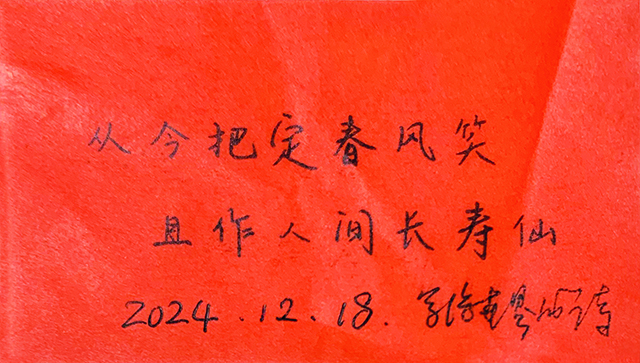 从今把定春风笑
且作人间长寿仙
2024.12.18.